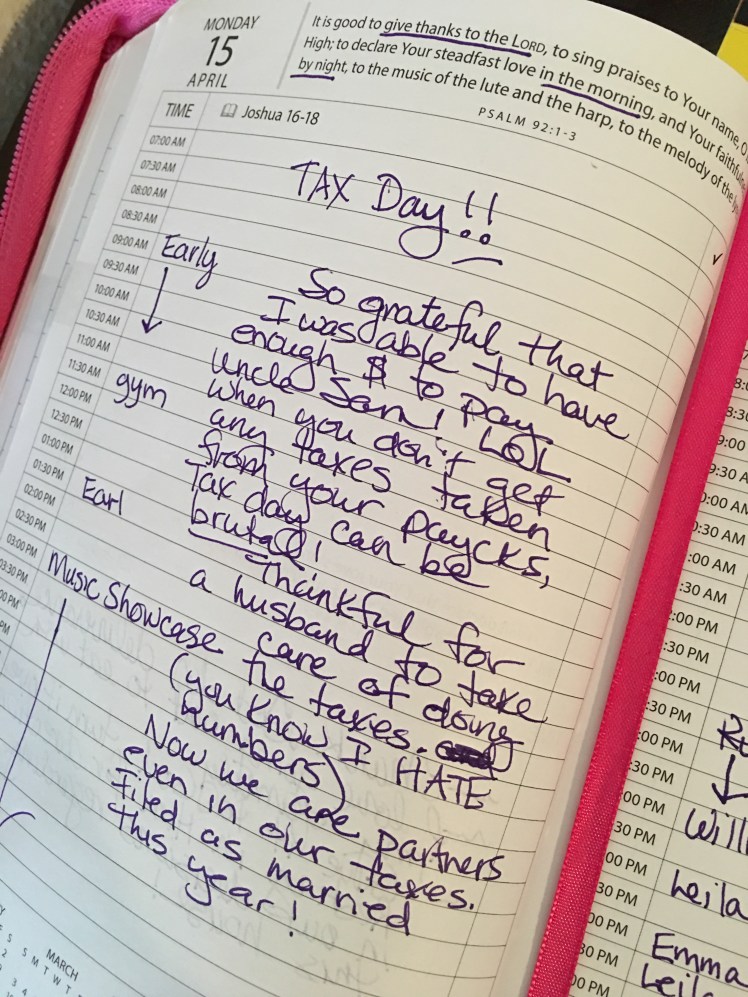 MONDAY
15
APRIL
It is good to give thanks to the LORD, to sing praises to Your name, O
High; to declare Your steadfast love in the morning, and Your faithfuln
by night, to the music of the lute and the harp, to the melody of the
PSALM 92:1-3
TIME
Joshua 16-18
07:00 AM
07:30 AM
08:00 AM
08:30 AM
09:00 AM
09:30 AM
10:00 AM
10:30 AM
11:00 AM
11:30 AM
12:00 PM
12:30 PM
01:00 PM
01:30 PM
02:00 PM
02:30 PM
03:00 PM
03:30 PM
00 PM
PM
TAX Day!!
Early
gym
Earl
Music Showcase
So grateful that
I was able to have
enough $ to pay
Uncle Sam! LOL
When you don't get
any taxes taken
from your paycks,
Tax day can be
brutal!
Thankful for
a husband to take
care of doing
the taxes.
(you know I HATE
numbers)
Now we are partners
even in our taxes.
Filed as married
this year!
MARCH
S M T W T
8:
8:3
9:00
9:30 A
0:00 AM
0:30 AM
:00 AM
:30 AM
:00 PM
:30 PM
:00 PM
:30 PM
:00 PM
:30 PM
:00 PM
30 PM
00 PM
30 PM
00 PM
30 PM
00 PM
Will
Leila
Emma
Leila